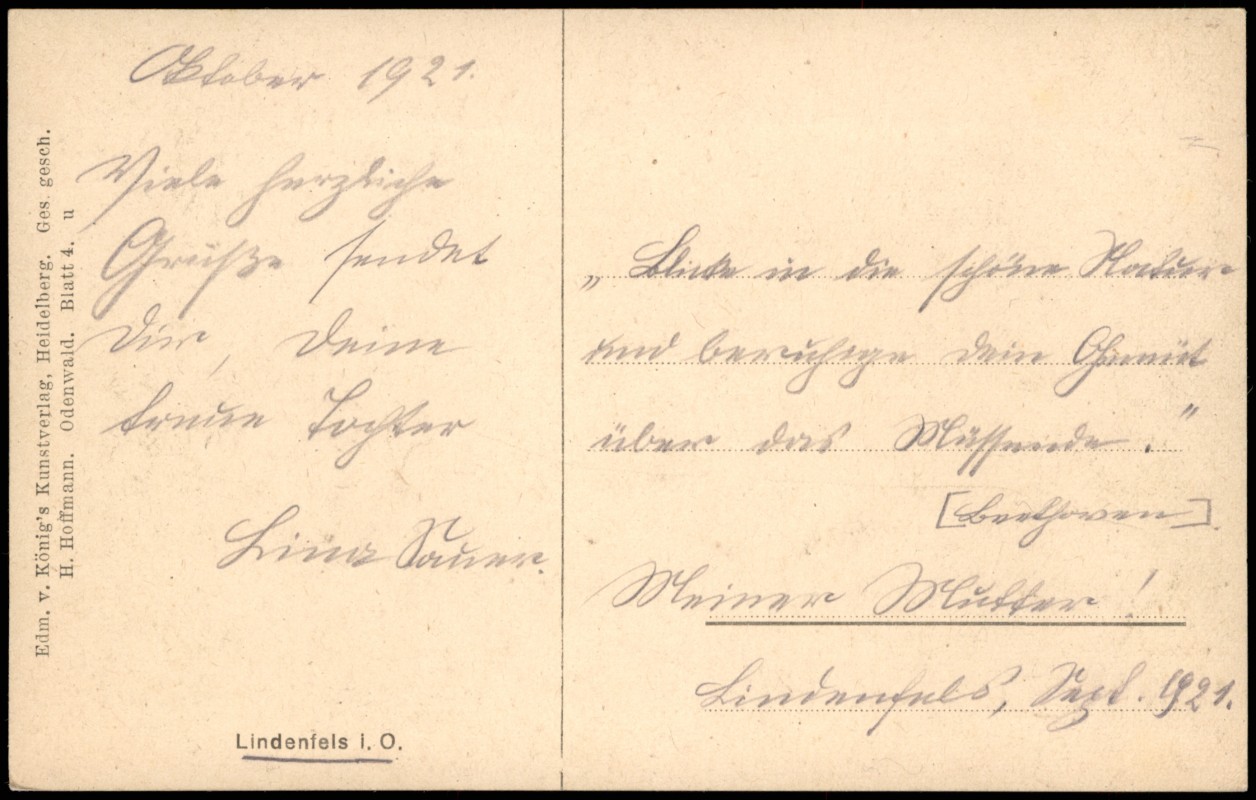 Oktober 1921.
Viele herzliche
Grüße sendet
Dir, Deine
treue Tochter
Lina Sauer.
Lindenfels i. O.
Edm. v. König's Kunstverlag, Heidelberg. Ges. gesch.
H. Hoffmann. Odenwald. Blatt 4. u
„Blicke in die schöne Natur
und beruhige dein Gemüt
über das Müssende."
[Beethoven]
Meiner Mutter!
Lindenfels, Sept. 1921.